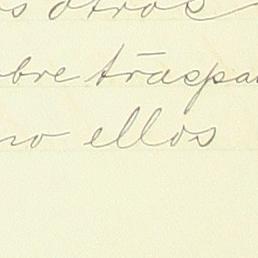 os otros
bre traspa
no ellos